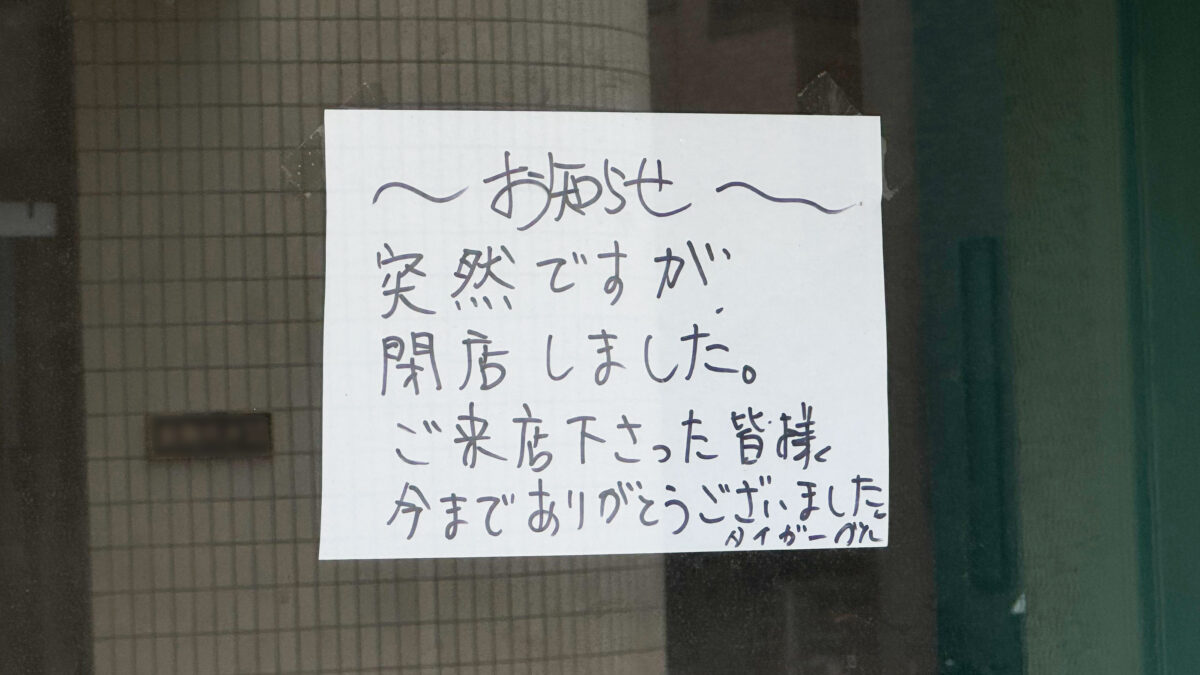 ～お知らせ～
突然ですが、
閉店しました。
ご来店下さった皆様
今までありがとうございました。
タイガー